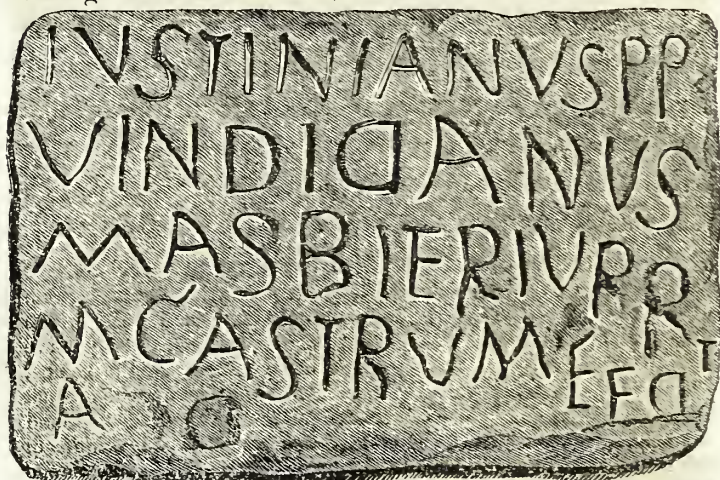 IVSTINIANVSPP
VINDICIANVS
MASBIERIVPR
MCASTRVMFECIT
A